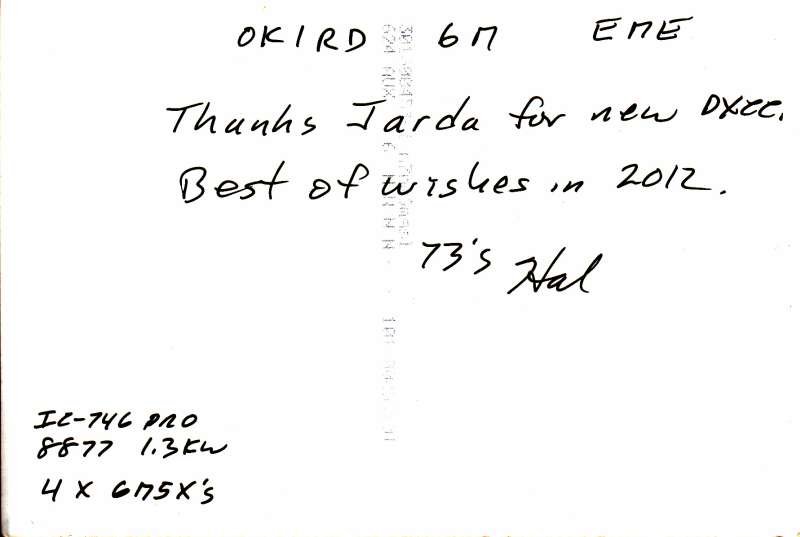 OK1RD 6M EME
Thanks Jarda for new DXCC.
Best of wishes in 2012.
73's Hal
IC-746 PRO
8877 1.3KW
4 X 6M5X's